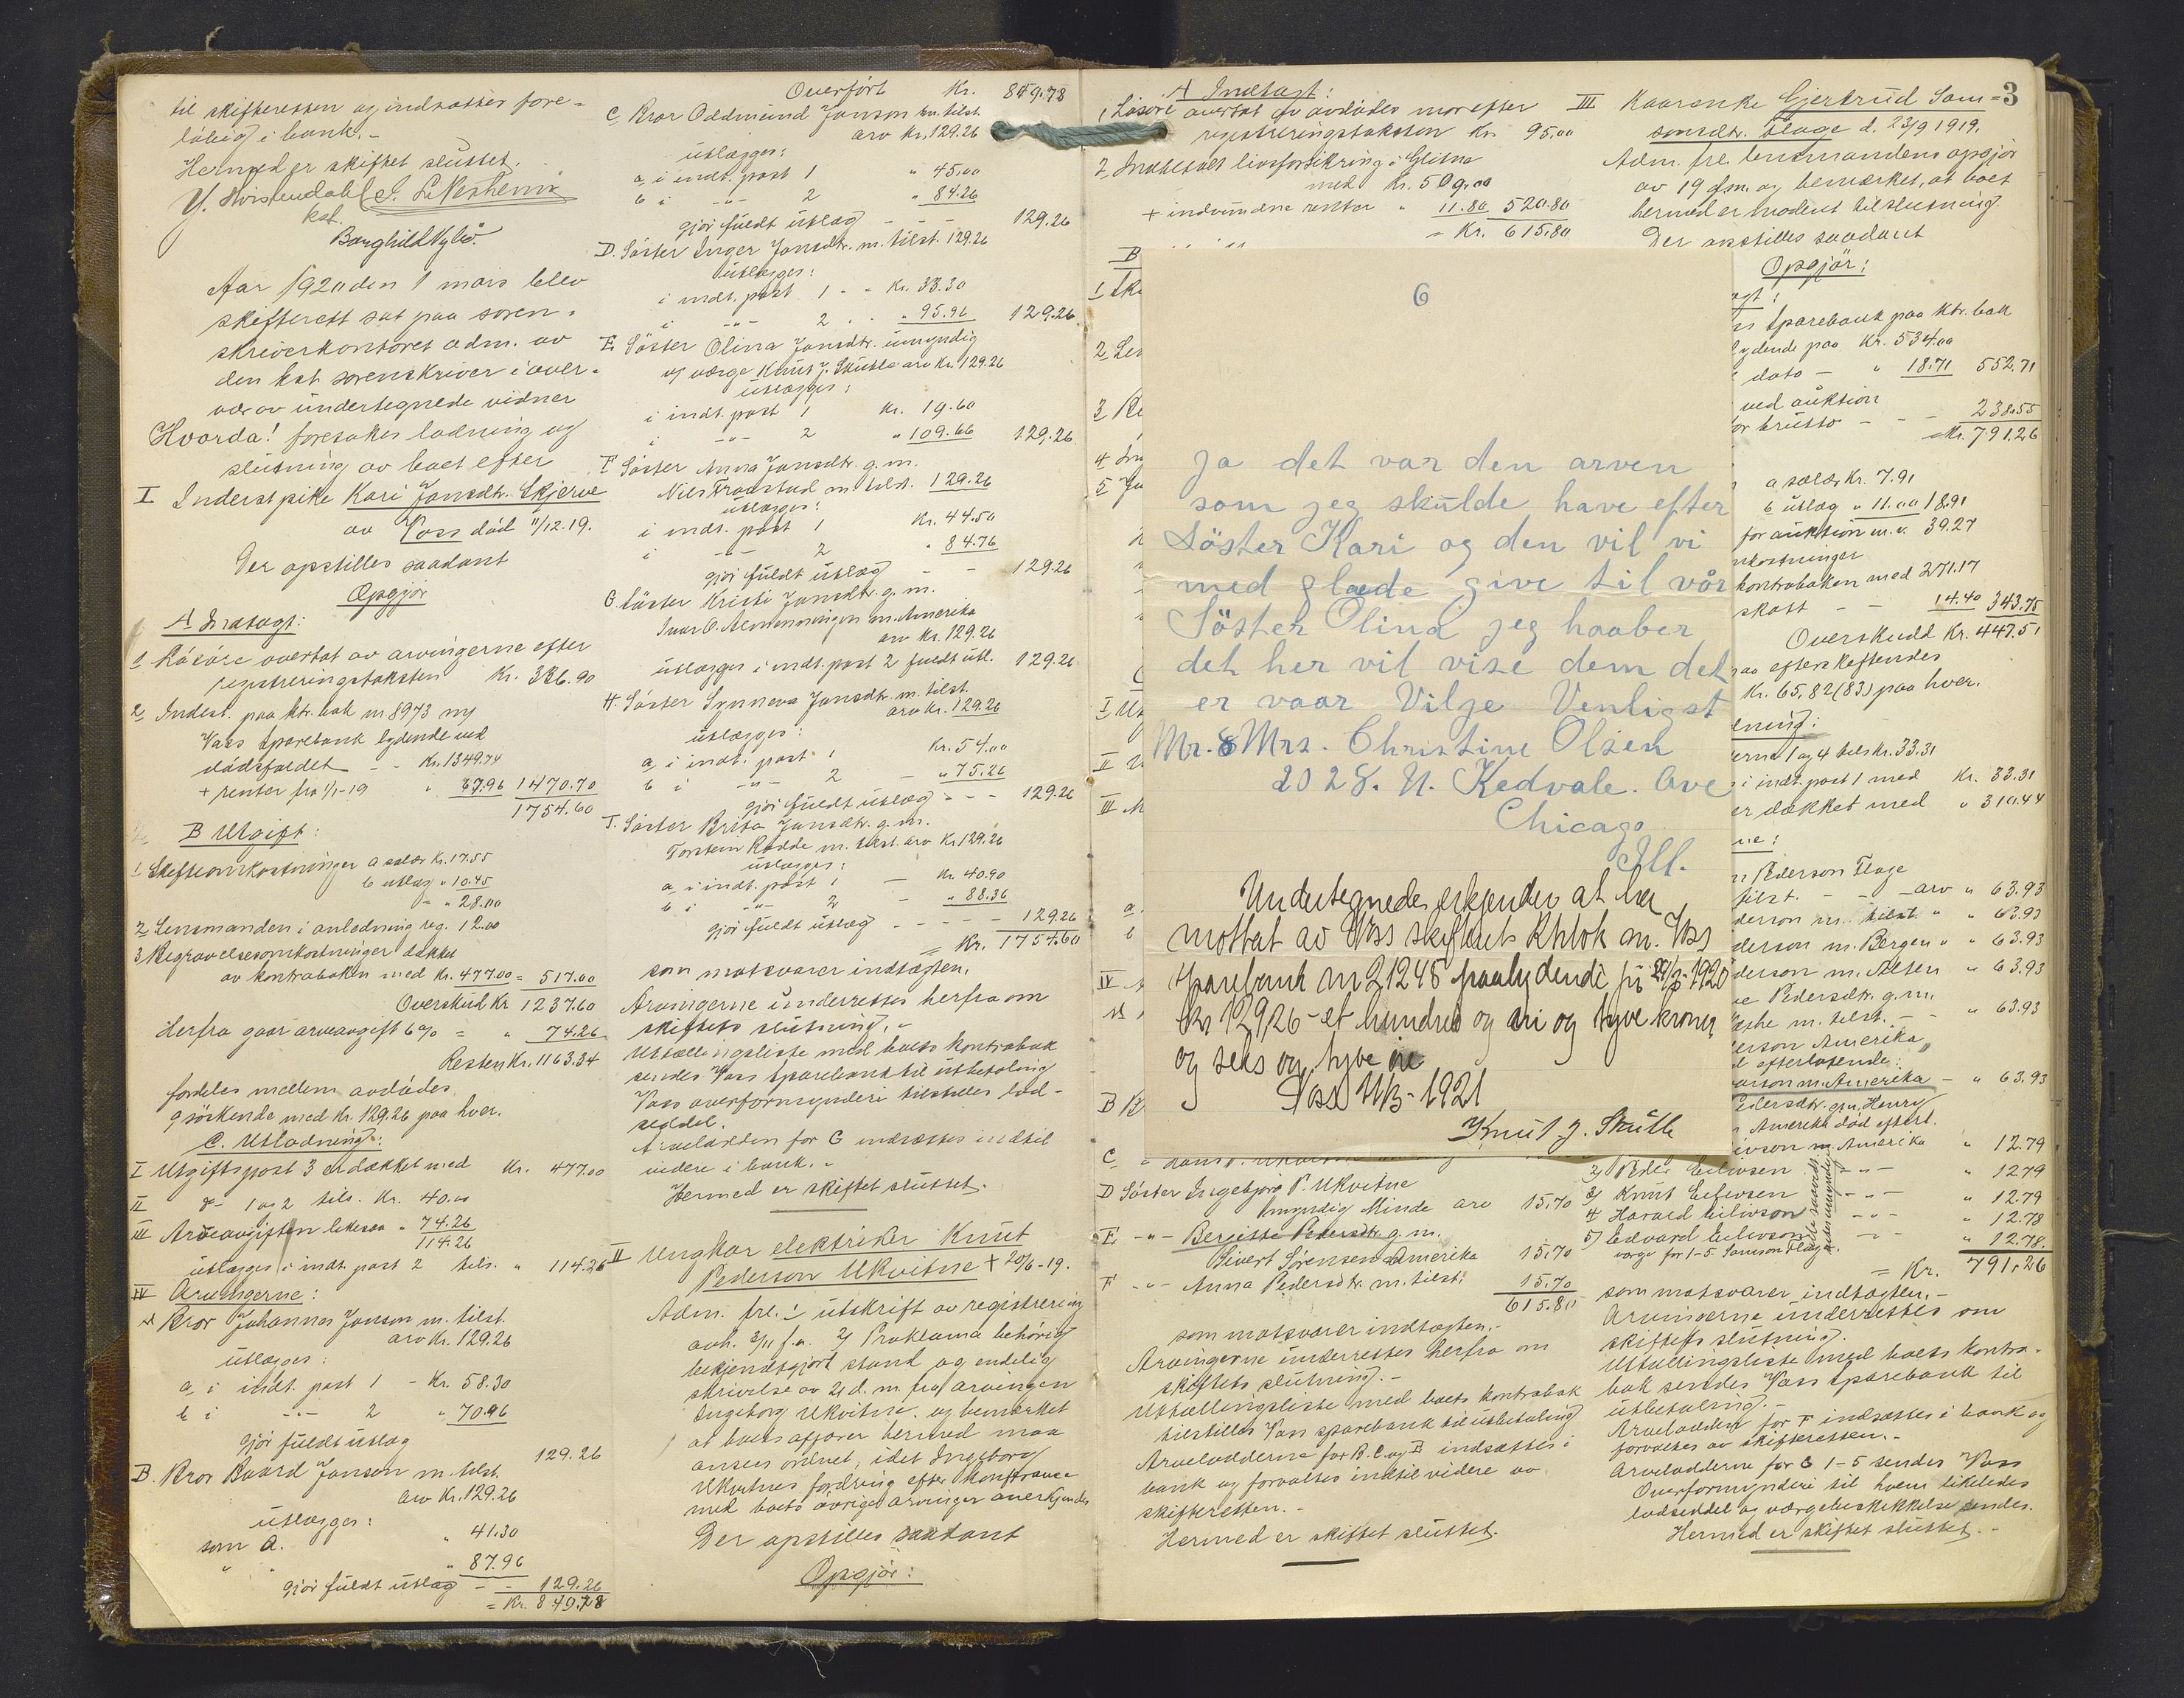 til skifteretten og indsættes fore=
løbig i bank.-
Hermed er skiftet sluttet.
kst.
Borghild Nybø.
Aar 1920 den 1 mars blev
skifterett sat paa soren=
skriverkontoret adm. av
den kst sorenskriver i over=
vær av undertegnede vidner
Hvorda! foretokes lodning og
slutning av boet efter
I Inderst pike Kari Jonsdtr. Skjerve
av Voss død 11/12.19.
Der opstilles saadant
Opgjör
A Indtægt:
1 Løsøre overtat av arvingerne efter
registreringstaksten Kr. 336.90
2 Indest. paa ktr. bok nr 8973 ny
Voss Sparebank lydende ved
dødsfaldet - - Kr. 1349.74
+ renter fra 1/1-19 " 67.96 1470.70
1754.60
B Utgift:
1 Skifteomkostninger a salær Kr. 17.55
b utlæg " 10.45
= " 28.00
2 Lensmanden i anledning reg. 12.00
3 Begravelsesomkostninger dækket
av kontraboken med Kr. 477.00 = 517.00
Overskud Kr 1237.60
Herfra gaar arveavgift 6% = " 74.26
Resten Kr. 1163.34
fordeles mellem avdødes
9 söskende med Kr. 129.26 paa hver.
C. Utlodning:
I Utgiftspost 3 er dækket med Kr. 477.00
II do 1 og 2 tils. Kr. 40.00
III Arveavgiften likesaa " 74.26
114.26
utlægges i indt. post 2 tils. " 114.26
IV Arvingerne:
A Bror Johannes Jonson m. tilst.
arv Kr. 129.26
utlægges:
a i indt. post 1 - Kr. 58.30
b i -"- 2 " 70.96
gjör fuldt utlæg 129.26
B. Bror Baard Jonson m. tilst.
arv Kr. 129.26
utlægges:
som A. " 41.30
" " " 87.96
gjör fuldt utlæg - - 129.26
= Kr. 849.78
Overført Kr. 849.78
C Bror Oddmund Jonson m. tilst.
arv Kr. 129.26
utlægges:
a i indt. post 1 " 45.00
b i -"- 2 " 84.26
gjör fuldt utlæg - - - 129.26
D. Söster Inger Jonsdtr. m. tilst. 129.26
utlægges:
i indt. post 1 - " Kr. 33.30
i -"- 2 . . " 95.96 129.26
E Söster Olina Jonsdtr. umyndig
og værge Knut J. Skutle arv Kr. 129.26
utlægges:
i indt. post 1 Kr. 19.60
i -"- 2 " 109.66 129.26
F Söster Anna Jonsdtr. g. m.
Nils m. tilst. 129.26
utlægges:
i indt. post 1 Kr. 44.50
i -"- 2 " 84.76
gjör fuldt utlæg - - 129.26
G. Söster Kristi Jonsdtr. g. m.
Ivar O. m. Amerika
arv Kr. 129.26
utlægges i indt. post 2 fuldt utl. 129.26
H. Söster Synneva Jonsdtr. m. tilst.
arv Kr. 129.26
utlægges:
a i indt. post 1 Kr. 54.00
b i -"- 2 - " 75.26
gjör fuldt utlæg - - - 129.26
J. Söster Brita Jonsdtr. g. m.
Torstein Rødde m. tilst. arv Kr 129.26
utlægges:
a i indt. post 1 - Kr 40.90
b i -"- 2 - " 88.36
gjör fuldt utlæg - - - - 129.26
= Kr. 1754.60
som motsvarer indtægten.
Arvingerne underrettes herfra om
skiftets slutning.-
Utsællingsliste med boets kontrabok
sendes Voss Sparebank til utbetaling
Voss overformynderi tilstilles lod-
seddel.
Arvelodden for G indsættes indtil
videre i bank.-
Hermed er skiftet sluttet.
II Ungkar elektriker Knut
Pederson Ukvitne † 20/6-19.
Adm. fre.: utskrift av registrering
avh. 3/11 f.a. 2) Proklama behörig
bekjendtgjort stand og endelig
skrivelse av 2/ d.m. fra arvingen
Ingeborg Ukvitne. og bemærket
at boets affærer hermed maa
ansees ordnet, idet Ingeborg
Ukvitnes fordring efter konferance
med boets övrige arvinger anerkjendes
Der opstilles saadant
Opgjör:
3
A Indtægt:
1 Løsøre overtat av avdødes mor efter
registreringstaksten Kr. 95.00
2 Indbetalt livsforsikring i Glitne
med Kr. 509.00
+ indvundne renter " 11.80 520.80
= Kr. 615.80
6
Ja det var den arven
som jeg skulde have efter
Söster Kari og den vil vi
med glæde give til vår
Söster Olina jeg haaber
det her vil vise dem det
er vaar Vilje Venligst
Mr. & Mrs. Christine Olsen
2028. N. Kedvale. Ave
Chicago
Ill.
Undertegnede erkjender at ha
mottat av Voss skifterets Ktrbok m. Voss
Sparebank nr 21248 paalydende pr 27/3-1920
Kr 129,26 - et hundred og ni og tyve kroner
og seks og tyve øre
Voss 11/3-1921
Knut J. Skutle
D Söster Ingebjörg P. Ukvitne
umyndig Minde arv 15.70
E -"- Bergitte Pedersdtr. g. m.
Sivert Sørensen Amerika 15.70
F -"- Anna Pedersdtr. m. tilst. 15.70
615.80
som motsvarer indtægten.-
Arvingerne underrettes herfra om
skiftets slutning.-
Utsællingsliste med boets kontrabok
tilstilles Voss sparebank til utbetaling
Arvelodderne for B. C. og E indsættes i
bank og forvaltes indtil videre av
skifteretten.-
Hermed er skiftet sluttet.
III Kaarenke Gjertrud Sam=
sonsdtr. Flage d. 23/9 1919.
Adm. fre. lensmandens opgjör
av 19 dsm. og bemærket, at boet
hermed er modent til slutning.
Der opstilles saadant
Opgjör:
Sparebank paa ktr. bok
lydende paa Kr. 534.00
dato - " 18.71 552.71
ved auktion
brutto - - 238.55
Kr. 791.26
a salær Kr. 7.91
b utlæg " 11.00 18.91
for auktion m.v. 39.27
kontraboken med 271.17
skatt - - 14.40 343.75
Overskudd Kr. 447.51
Kr. 65,82 (83) paa hver.
1 og 4 tils Kr. 33.31
i indt. post 1 med Kr. 33.31
er dækket med " 310.44
Pederson Flage
tilst. - - - arv " 63.93
m. tilst " " 63.93
m. Bergen " " 63.93
" 63.93
Pedersdtr. g. m.
m. tilst. - - " 63.93
Amerika
efterlatende:
m. Amerika - " 63.93
g. m. Henry
Amerika död efterl.
m Amerika " 12.79
2) Peder Eilivsen -"- " 12.79
3) Knut Eilivsen -"- " 12.79
4 Harald Eilivson -"- " 12.78
5) Edvard Eilivson -"- " 12.78.
værge for 1-5 Samson Flage
= Kr. 791.26
som motsvarer indtægten.-
Arvingerne underrettes om
skiftets slutning.
Utsællingsliste med boets kontra-
bok sendes Voss Sparebank til
utbetaling.-
Arvelodden for F indsættes i bank og
forvaltes av skifteretten.-
Arvelodderne for G 1-5 sendes Voss
Overformynderi til hvem likeledes
lodseddel og værgebeskikkelse sendes.
Hermed er skiftet sluttet.-